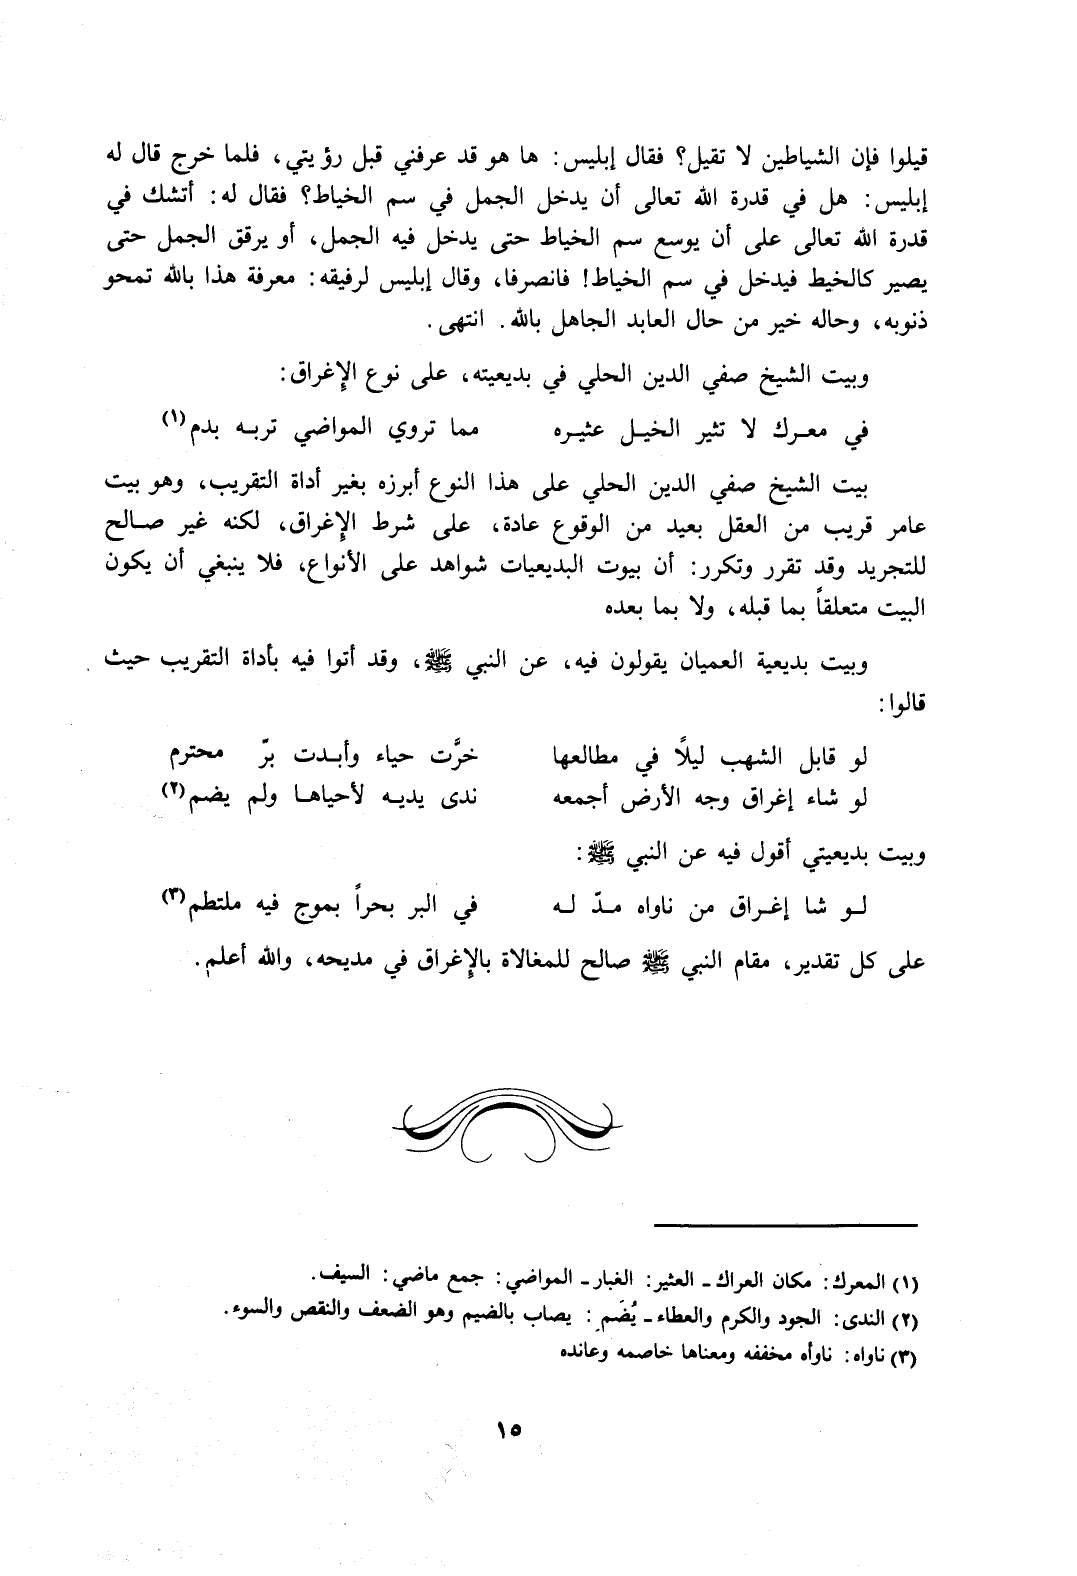 قيلوا فإن الشياطين لا تقيل؟ فقال إبليس: ها هو قد عرفني قبل رؤيتي، فلما خرج قال له
إبليس: هل في قدرة الله تعالى أن يدخل الجمل في سم الخياط؟ فقال له: أتشك في
قدرة الله تعالى على أن يوسع سم الخياط حتى يدخل فيه الجمل، أو يرقق الجمل حتى
يصير كالخيط فيدخل في سم الخياط! فانصرفا، وقال إبليس لرفيقه: معرفة هذا بالله تمحو
ذنوبه، وحاله خير من حال العابد الجاهل بالله. انتهى.
وبيت الشيخ صفي الدين الحلي في بديعيته، على نوع الإغراق:
في معرك لا تثير الخيل عثيره مما تروي المواضي تربه بدم(١)
بيت الشيخ صفي الدين الحلي على هذا النوع أبرزه بغير أداة التقريب، وهو بيت
عامر قريب من العقل بعيد من الوقوع عادة، على شرط الإغراق، لكنه غير صالح
للتجريد وقد تقرر وتكرر: أن بيوت البديعيات شواهد على الأنواع، فلا ينبغي أن يكون
البيت متعلقاً بما قبله، ولا بما بعده
وبيت بديعية العميان يقولون فيه، عن النبي ﷺ، وقد أتوا فيه بأداة التقريب حيث
قالوا:
لو قابل الشهب ليلًا في مطالعها خرَّت حياء وأبدت برّ محترم
لو شاء إغراق وجه الأرض أجمعه ندى يديه لأحياها ولم يضم(٢)
وبيت بديعيتي أقول فيه عن النبي ﷺ:
لو شا إغراق من ناواه مدّ له في البر بحراً بموج فيه ملتطم(٣)
على كل تقدير، مقام النبي ﷺ صالح للمغالاة بالإغراق في مديحه، والله أعلم.
(١) المعرك: مكان العراك - العثير: الغبار - المواضي: جمع ماضي: السيف.
(٢) الندى: الجود والكرم والعطاء - يُضَمِ: يصاب بالضيم وهو الضعف والنقص والسوء.
(٣) ناواه: ناوأه مخففه ومعناها خاصمه وعانده
١٥